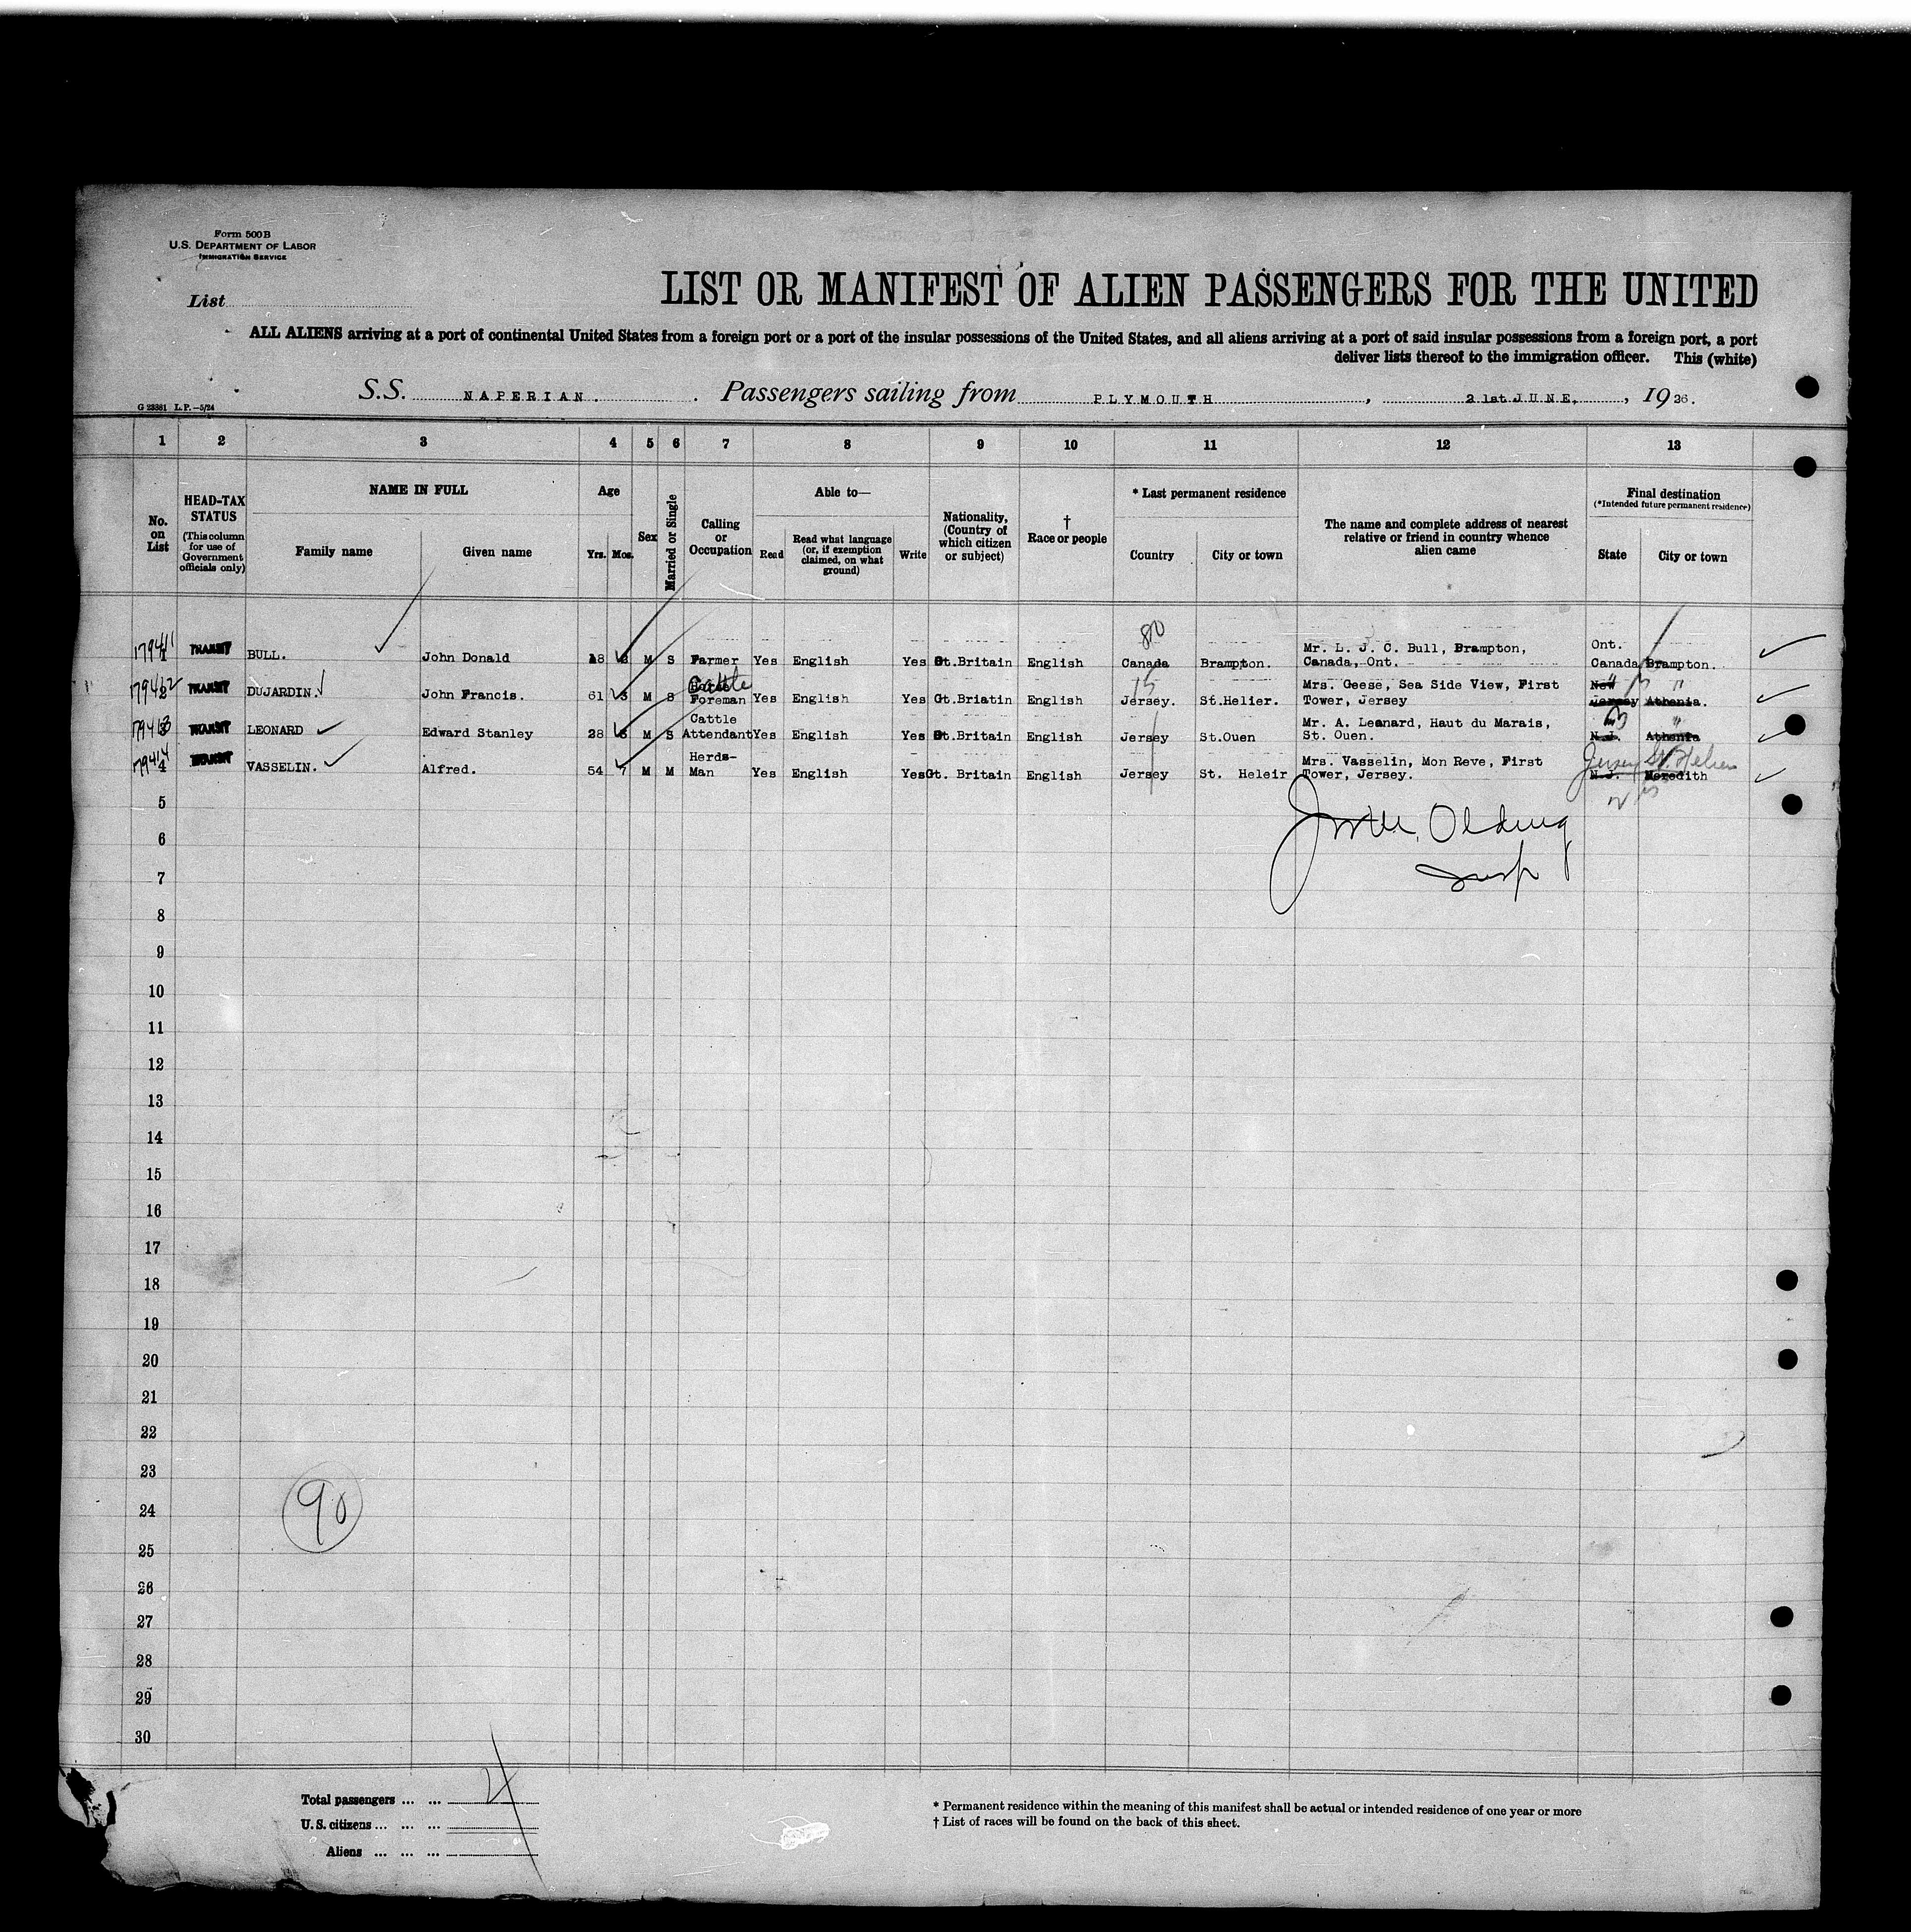 Form 500B
U.S. DEPARTMENT OF LABOR
IMMIGRATION SERVICE
List
LIST OR MANIFEST OF ALIEN PASSENGERS FOR THE UNITED
ALL ALIENS arriving at a port of continental United States from a foreign port or a port of the insular possessions of the United States, and all aliens arriving at a port of said insular possessions from a foreign port, a port
deliver lists thereof to the immigration officer. This (white)
S.S. NAPERIAN. Passengers sailing from PLYMOUTH, 21st JUNE, 1926.
G 23381 L.P.—5/24
1 2 3 4 5 6 7 8 9 10 11 12 13
No. on List
HEAD-TAX STATUS
(This column for use of Government officials only)
NAME IN FULL
Family name
Given name
Age
Yrs. Mos.
Sex
Married or Single
Calling or Occupation
Able to—
Read
Read what language (or, if exemption claimed, on what ground)
Write
Nationality, (Country of which citizen or subject)
† Race or people
* Last permanent residence
Country
City or town
The name and complete address of nearest relative or friend in country whence alien came
Final destination
(*Intended future permanent residence)
State
City or town
TRANSIT BULL. John Donald 18 M S Farmer Yes English Yes Gt.Britain English Canada Brampton. Mr. L. J. C. Bull, Brampton, Canada, Ont. Ont. Canada Brampton.
TRANSIT DUJARDIN. John Francis. 61 M S Cattle Foreman Yes English Yes Gt.Briatin English Jersey. St.Helier. Mrs. Geese, Sea Side View, First Tower, Jersey New Jersey Athenia.
TRANSIT LEONARD Edward Stanley 28 M S Cattle Attendant Yes English Yes Gt.Britain English Jersey St.Ouen Mr. A. Leanard, Haut du Marais, St. Ouen. N.J. Athenia
TRANSIT VASSELIN. Alfred. 54 7 M M Herds-Man Yes English Yes Gt. Britain English Jersey St. Heleir Mrs. Vasselin, Mon Reve, First Tower, Jersey. N.J. Meredith
Jersey St. Helier
5
6
7
8
9
10
11
12
13
14
15
16
17
18
19
20
21
22
23
24
90
25
26
27
28
29
30
Total passengers ... ... 4
U.S. citizens ... ... ...
Aliens ... ... ...
* Permanent residence within the meaning of this manifest shall be actual or intended residence of one year or more
† List of races will be found on the back of this sheet.